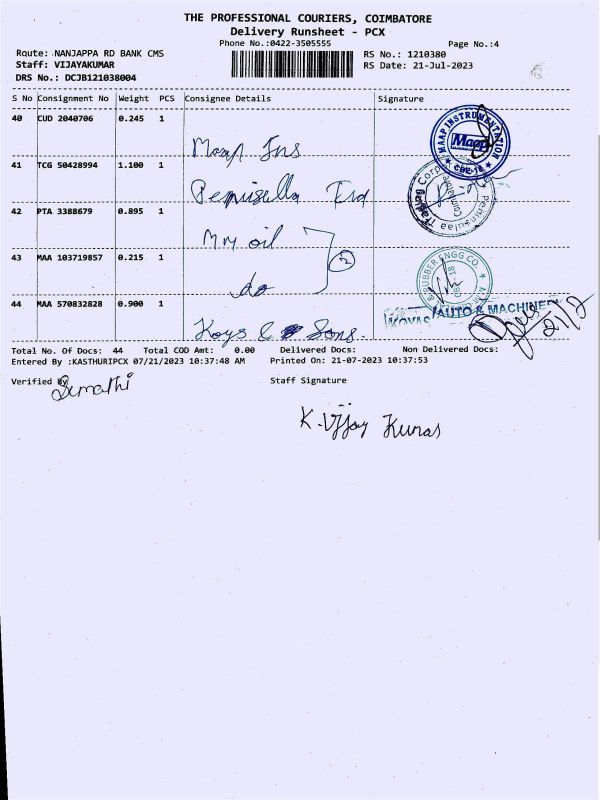 THE PROFESSIONAL COURIERS, COIMBATORE
Delivery Runsheet - PCX
Phone No.:0422-3505555
Page No.:4
Route: NANJAPPA RD BANK CMS
RS No.: 1210380
Staff: VIJAYAKUMAR
RS Date: 21-Jul-2023
DRS No.: DCJB121038004
S No Consignment No Weight PCS Consignee Details Signature
40 CUD 2040706 0.245 1
Maap Ins
MAAP INSTRUMENTATION
Maap
CBE-18
41 TCG 50428994 1.100 1
Coimbatore
42 PTA 3388679 0.895 1
Mm oil
2
43 MAA 103719857 0.215 1
do
& RUBBER ENGG CO
44 MAA 570832828 0.900 1
Koys & Sons
AUTO & MACHINE
21/7
Total No. Of Docs: 44 Total COD Amt: 0.00 Delivered Docs: Non Delivered Docs:
Entered By :KASTHURIPCX 07/21/2023 10:37:48 AM Printed On: 21-07-2023 10:37:53
Verified By
Staff Signature
K. Vijay Kumar